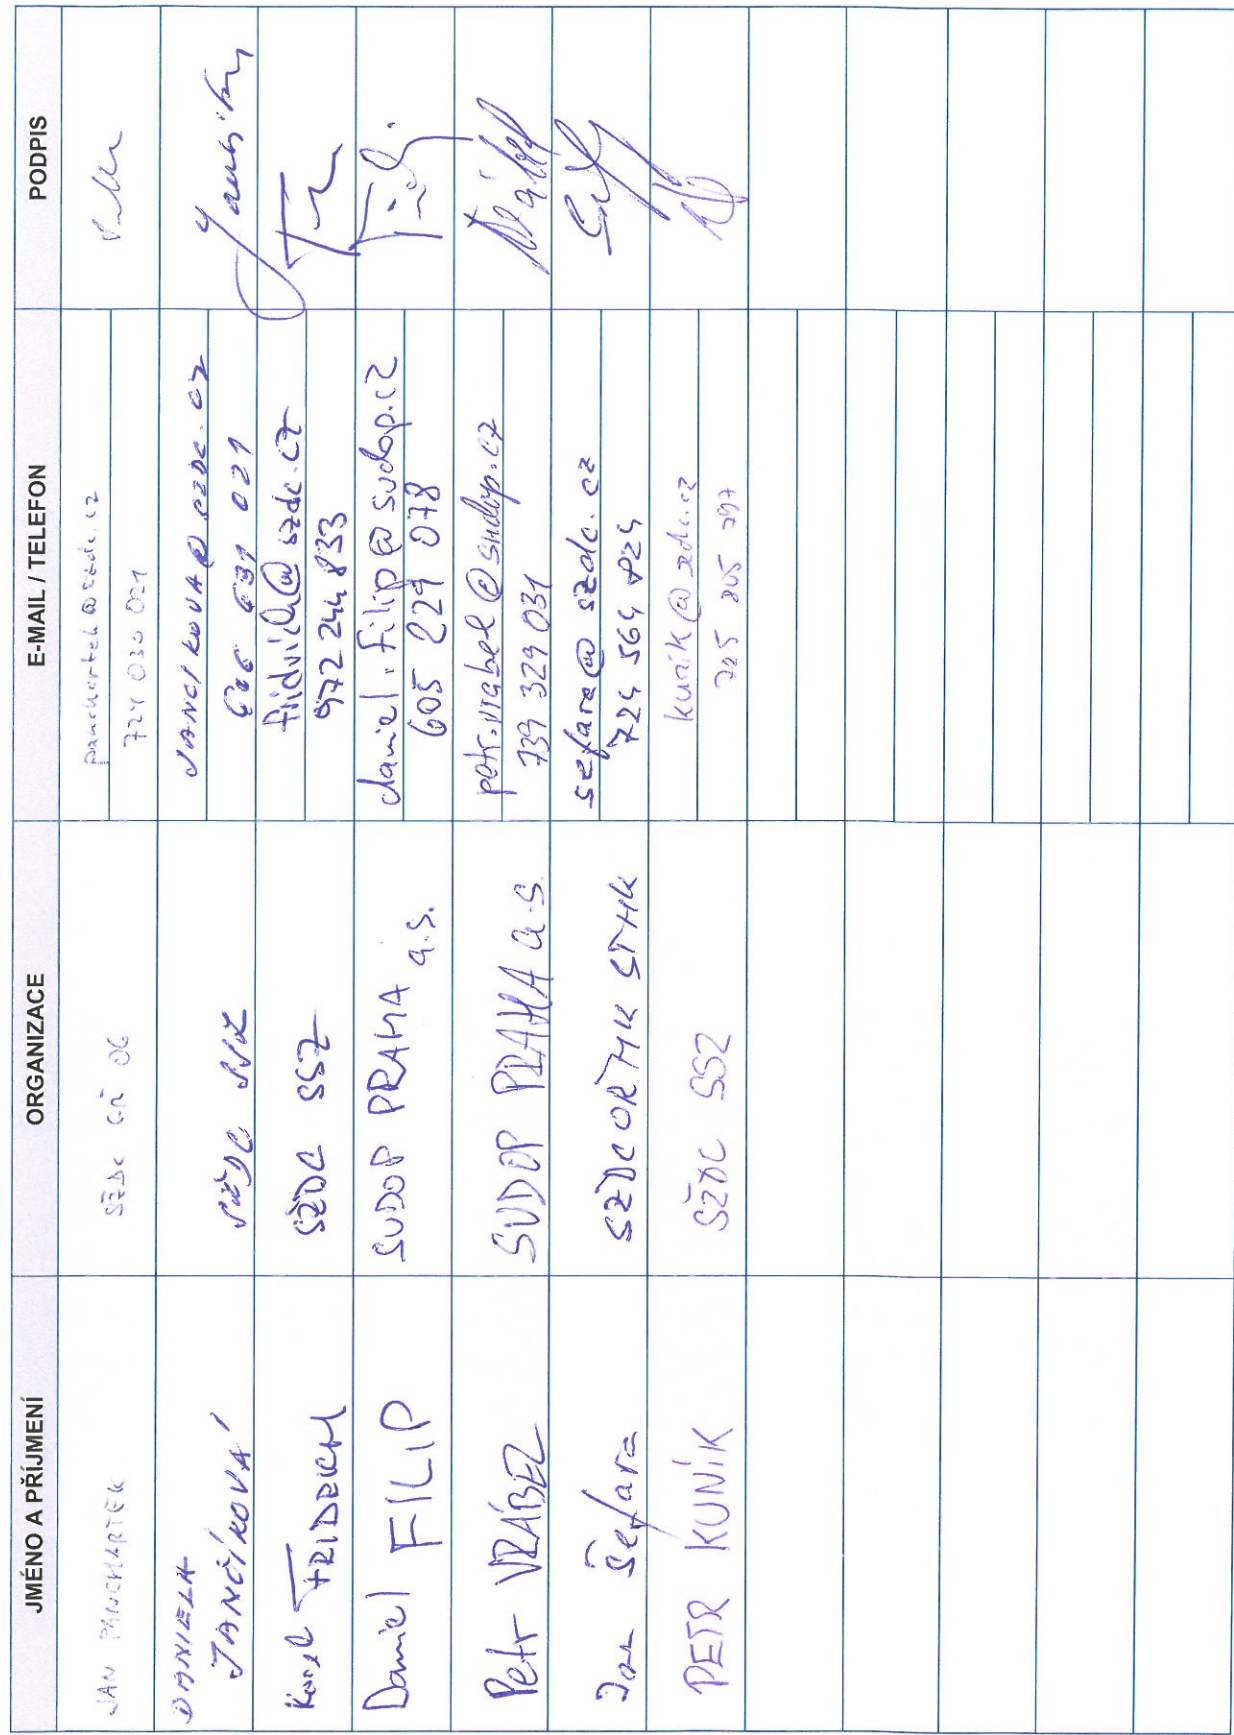 JMÉNO A PŘÍJMENÍ ORGANIZACE E-MAIL / TELEFON PODPIS
JAN PANCHARTEK SŽDC GŘ O6 panchartek@szdc.cz
724 030 021
DANIELA JANCIKOVA@SZDC.CZ
JANČÍKOVÁ SŽDC SSZ 031 021
Karel FRIDRICH SŽDC SSZ fridrich@szdc.cz
972 244 833
Daniel FILIP SUDOP PRAHA a.s. daniel.filip@sudop.cz
605 229 078
Petr VRÁBEL SUDOP PRAHA a.s. petr.vrabel@sudop.cz
739 329 031
Jan Šefara SŽDC sefara@szdc.cz
724 564 824
PETR KUNÍK SŽDC SSZ kunik@szdc.cz
725 805 797